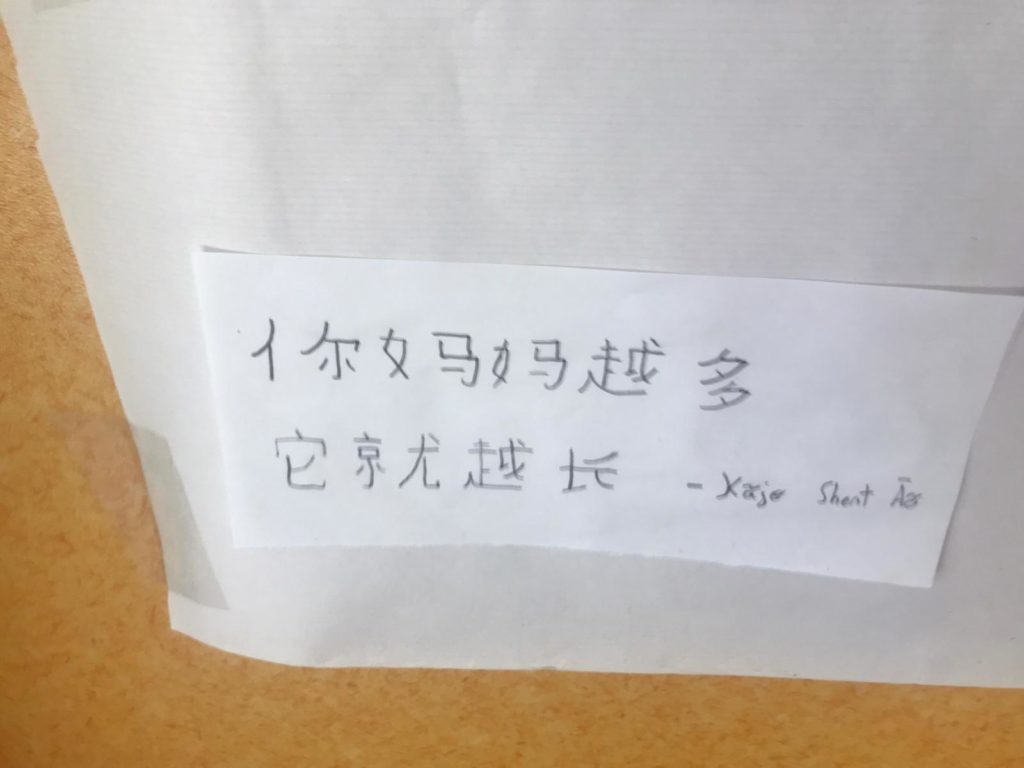 你妈妈越多
它就越长 - Shent